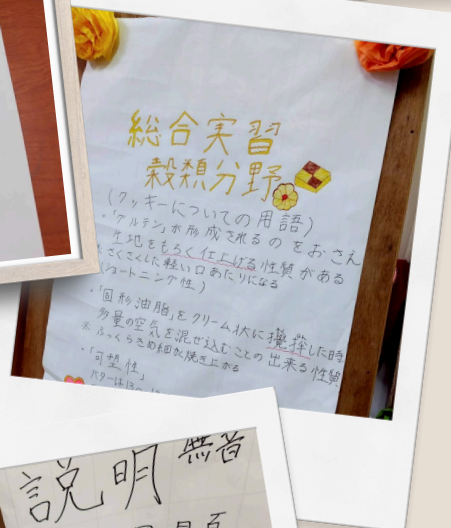 総合実習
穀類分野
(クッキーについての用語)
・「グルテン」が形成されるのをおさえ
生地をもろく仕上げる性質がある
※さくさくした軽い口あたりになる
(ショートニング性)
・「固形油脂」をクリーム状に攪拌した時
多量の空気を混ぜ込むことの出来る性質
※ふっくらきめ細か焼き上がる
・「可塑性」
バターは13℃
説明 無音